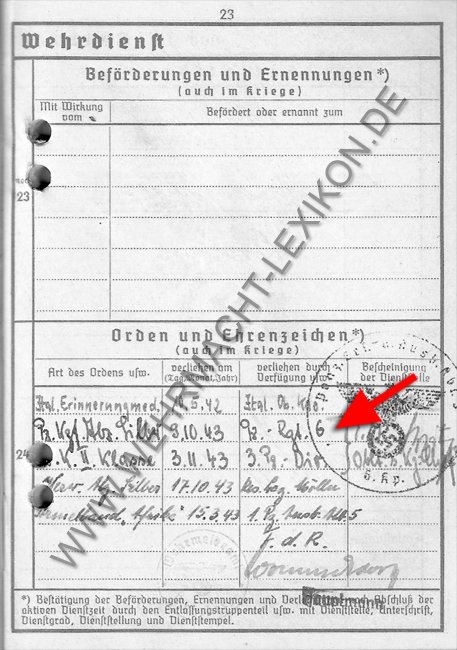 23
Wehrdienst
Beförderungen und Ernennungen*)
(auch im Kriege)
Mit Wirkung vom
Befördert oder ernannt zum
23
Orden und Ehrenzeichen*)
(auch im Kriege)
Art des Ordens usw.
verliehen am (Tag, Monat, Jahr)
verliehen durch Verfügung usw.
Bescheinigung der Dienststelle
Ital. Erinnerungsmed. 5.42 Ital. Ob. Kdo.
Pz. Kpf. Abz. Silber .10.43 Pz.-Rgt. 6
24
K. II Klasse 3.11.43 3. Pz.-Div.
Verw. Abz. Silber 17.10.43 Res. Laz. Mölln
Ärmelband „Afrika“ 15.3.43 1. Pz. Ausb. Abt. 5
F. d. R.
Hauptmann
*) Bestätigung der Beförderungen, Ernennungen und Verleihungen nach Abschluß der
aktiven Dienstzeit durch den Entlassungstruppenteil usw. mit Dienststelle, Unterschrift,
Dienstgrad, Dienststellung und Dienststempel.
WWW.WEHRMACHT-LEXIKON.DE